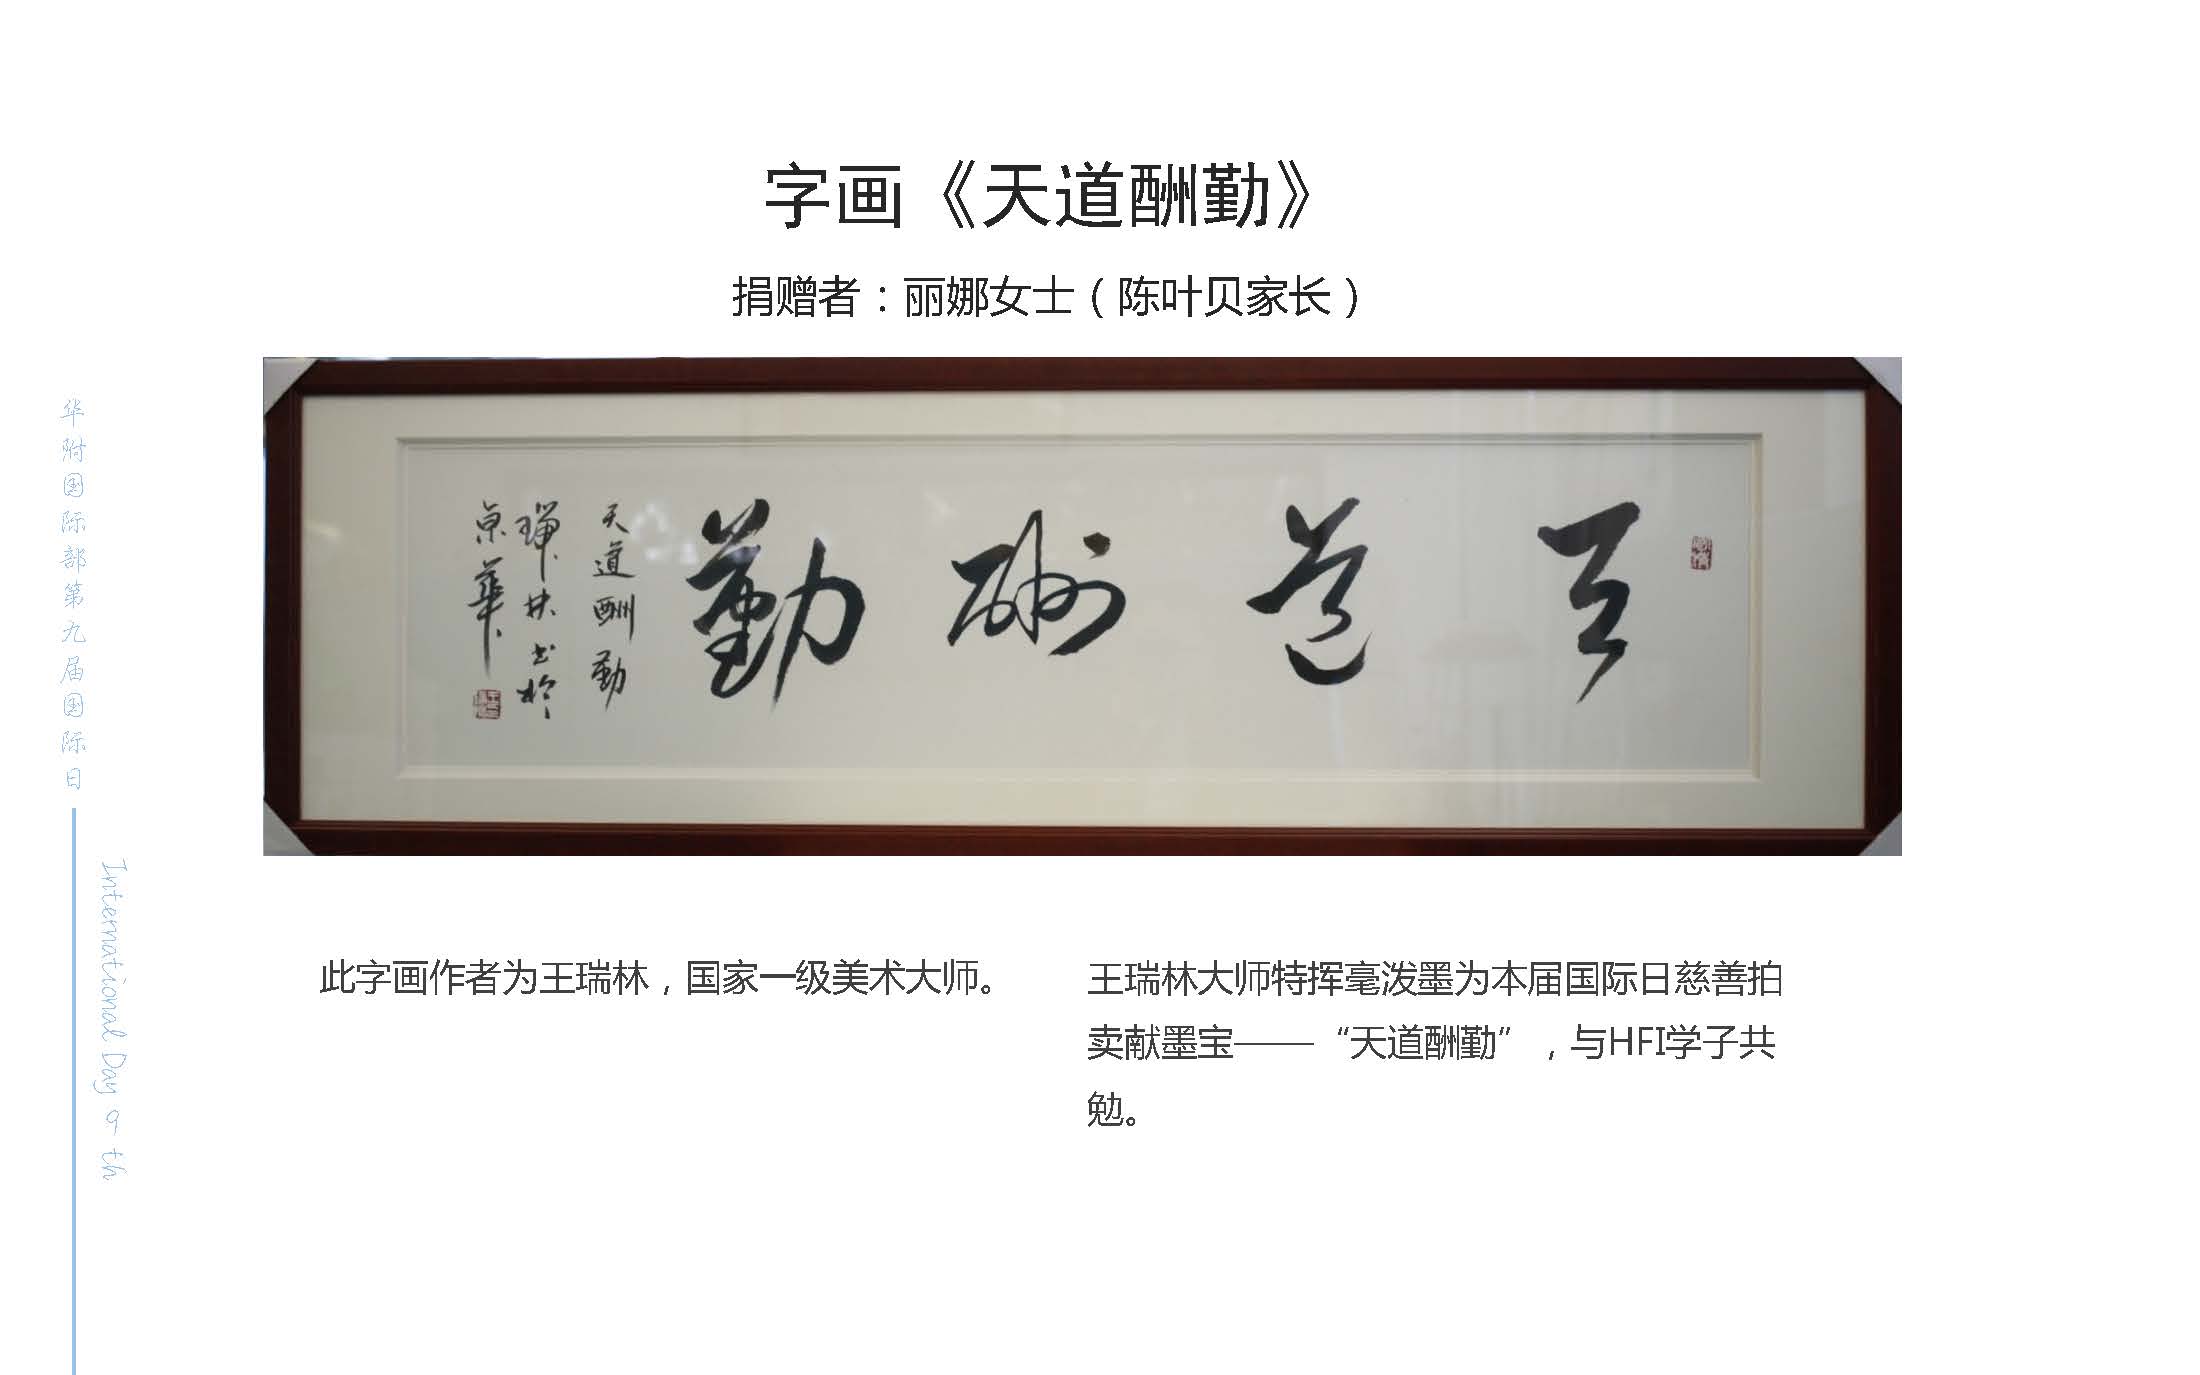 字画《天道酬勤》
捐赠者：丽娜女士（陈叶贝家长）
天道酬勤
天道酬勤
瑞林书於
京华
此字画作者为王瑞林，国家一级美术大师。
王瑞林大师特挥毫泼墨为本届国际日慈善拍
卖献墨宝——“天道酬勤”，与HFI学子共
勉。
华附国际部第九届国际日
International Day 9 th